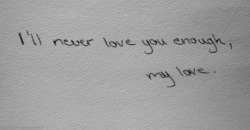 I'll never love you enough,
my love.